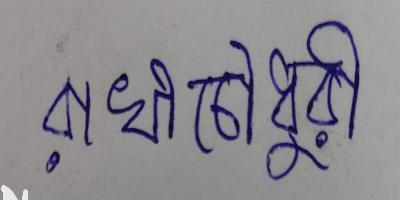 রাখী চৌধুরী